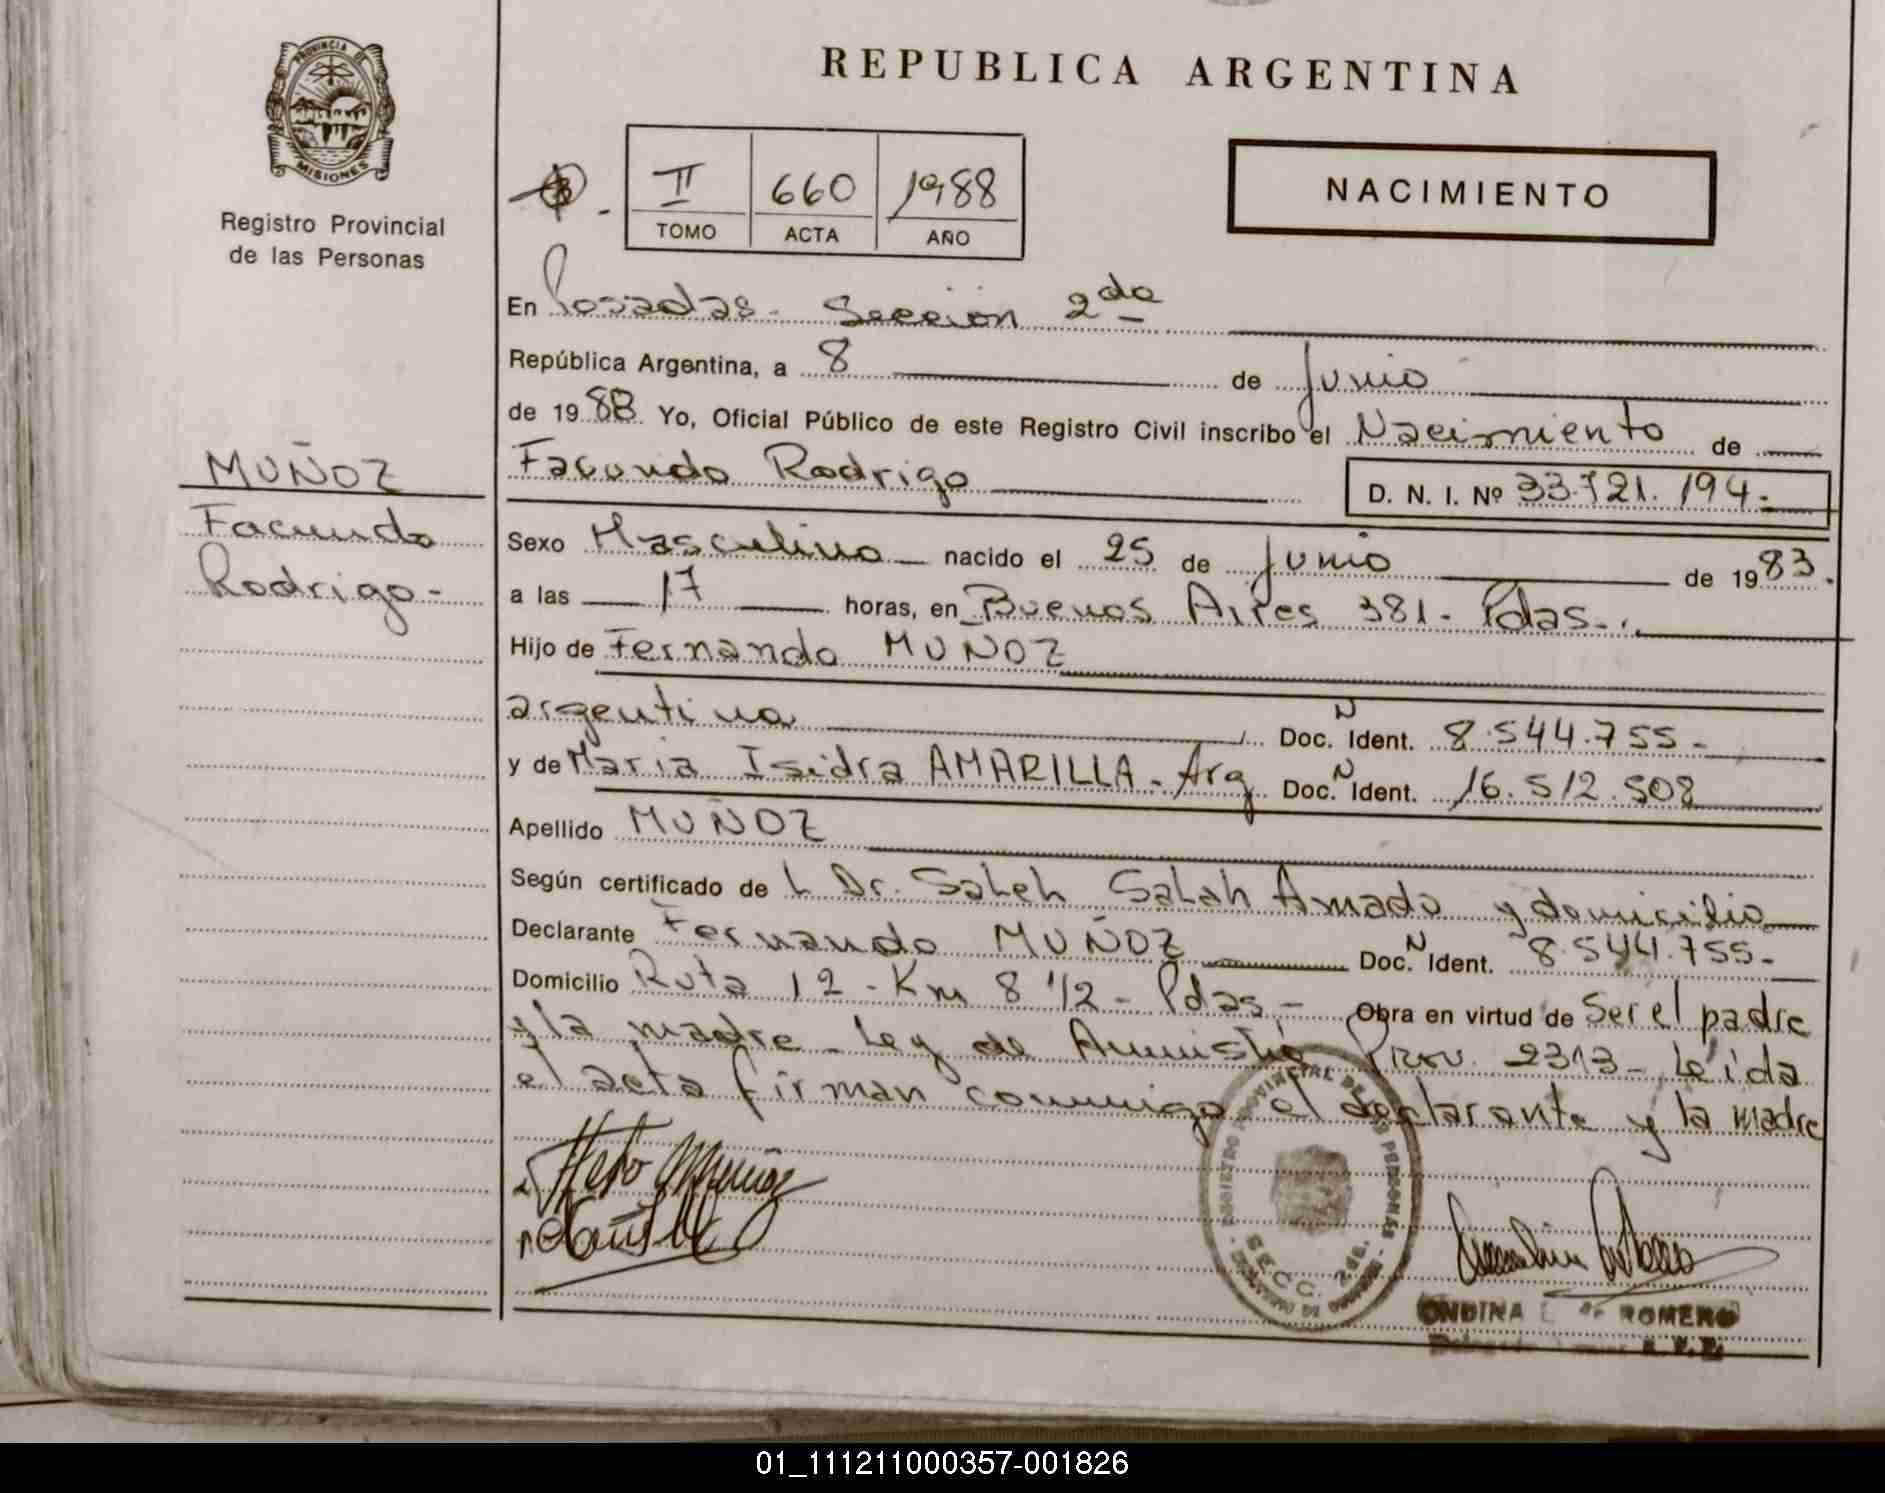 PROVINCIA DE
MISIONES
Registro Provincial
de las Personas
REPUBLICA ARGENTINA
II 660 1988
TOMO ACTA AÑO
NACIMIENTO
En Posadas - Sección 2da
República Argentina, a 8 de Junio
de 1988 Yo, Oficial Público de este Registro Civil inscribo el Nacimiento de
MUÑOZ
Facundo
Rodrigo -
Facundo Rodrigo D. N. I. Nº 33.721.194.-
Sexo Masculino nacido el 25 de Junio de 1983.
a las 17 horas, en Buenos Aires 381 - Pdas -.
Hijo de Fernando MUÑOZ
argentina Doc. N Ident. 8.544.755 -
y de Maria Isidra AMARILLA - Arg Doc. N Ident. 16.512.508
Apellido MUÑOZ
Según certificado de L Dr. Saleh Salah Amado y domicilio
Declarante Fernando MUÑOZ Doc. N Ident. 8.544.755 -
Domicilio Ruta 12 - Km 8 1/2 - Pdas - Obra en virtud de Ser el padre
y la madre - Ley de Amnistía Prov. 2313 - Leída
el acta firman conmigo el declarante y la madre
REGISTRO PROVINCIAL DE LAS PERSONAS
SECC. 2da.
ONDINA de ROMERO